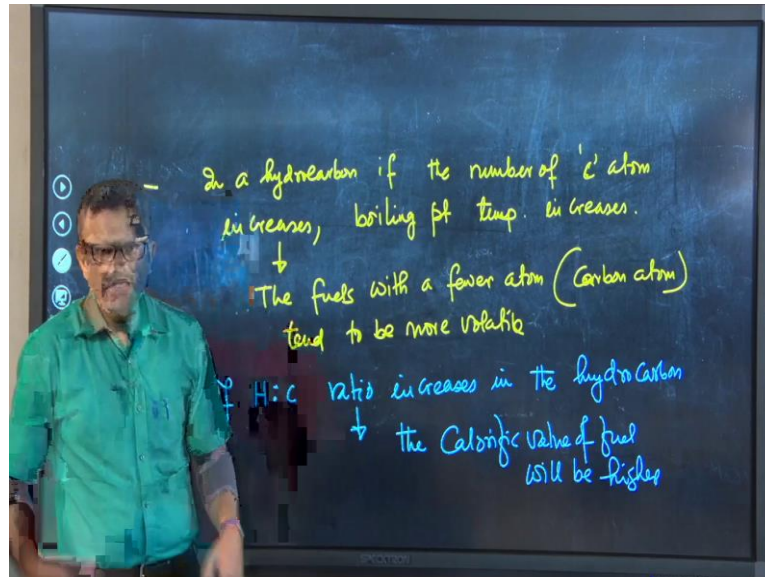 – In a hydrocarbon if the number of 'c' atom
increases, boiling pt temp. increases.
↓
The fuels with a fewer atom (Carbon atom)
tend to be more volatile
If H:C ratio increases in the hydrocarbon
↓ the Calorific value of fuel
will be higher